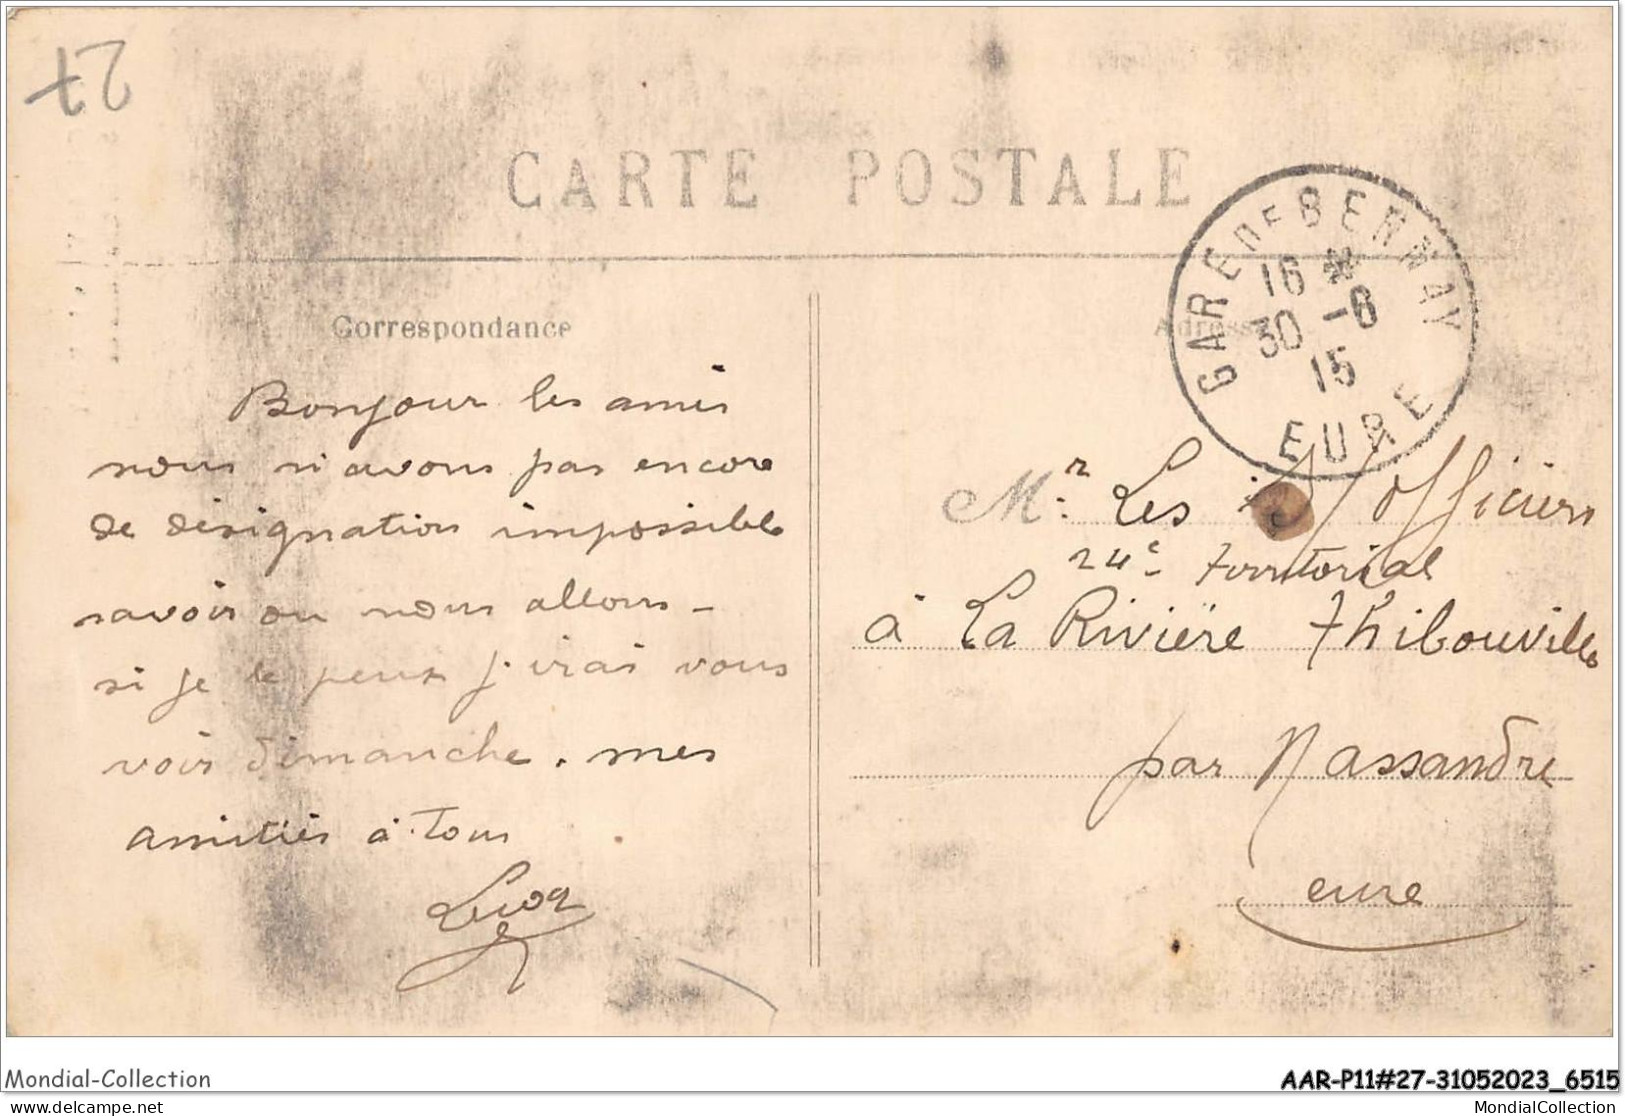 27
CARTE POSTALE
GARE DE BERNAY
16 *
30 -6
15
EURE
Correspondance
Adresse
Bonjour les amis
nous n'avons pas encore
de désignation impossible
savoir ou nous allons -
si je le peux j'irai vous
voir dimanche. mes
amitiés à tous
Mr. Les S/Officiers
24e territorial
à La Rivière Thibouville
par Nassandre
eure
Mondial-Collection
AAR-P11#27-31052023_6515
delcampe.net
MondialCollection